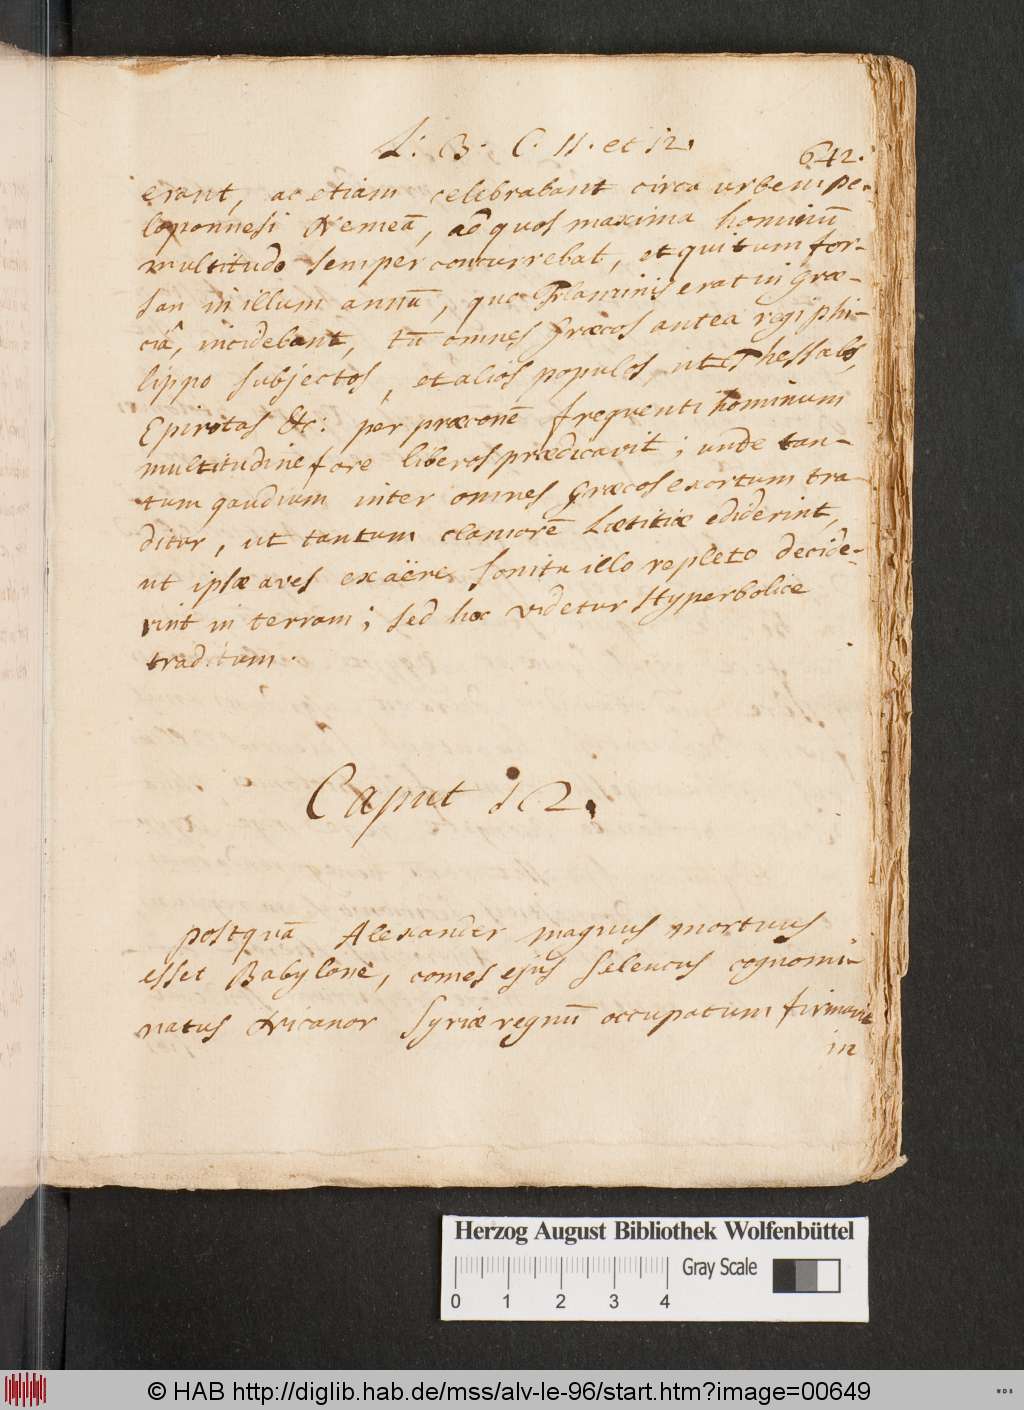 L: 3. C. 11. et 12.
642.
erant, ac etiam celebrabant circa urbem pe-
loponnesi Nemeã, ad quos maxima hominũ
multitudo semper concurrebat, et qui tum for-
san in illum annũ, quo Flaminis erat in Græ-
ciâ, incidebant, tũ omnes Græcos antea regi phi-
lippo subjectos, et aliós populos, ut Thessalos,
Epirotas &c: per præconẽ frequenti hominum
multitudine fore liberos prædicavit; unde tan-
tum gaudium inter omnes Græcos exortum tra
ditur, ut tantum clamorẽ Lætitiæ ediderint,
ut ipsæ aves ex aëre, sonitu illo repleto decide-
rint in terram; sed hoc videtur Hyperbolice
traditum.
Caput 12.
postquã Alexander magnus mortuus
esset Babylone, comes ejus Seleucus cognomi-
natus Nicanor Syriæ regnũ occupatum firmavit
in
Herzog August Bibliothek Wolfenbüttel
Gray Scale
0 1 2 3 4
© HAB http://diglib.hab.de/mss/alv-le-96/start.htm?image=00649